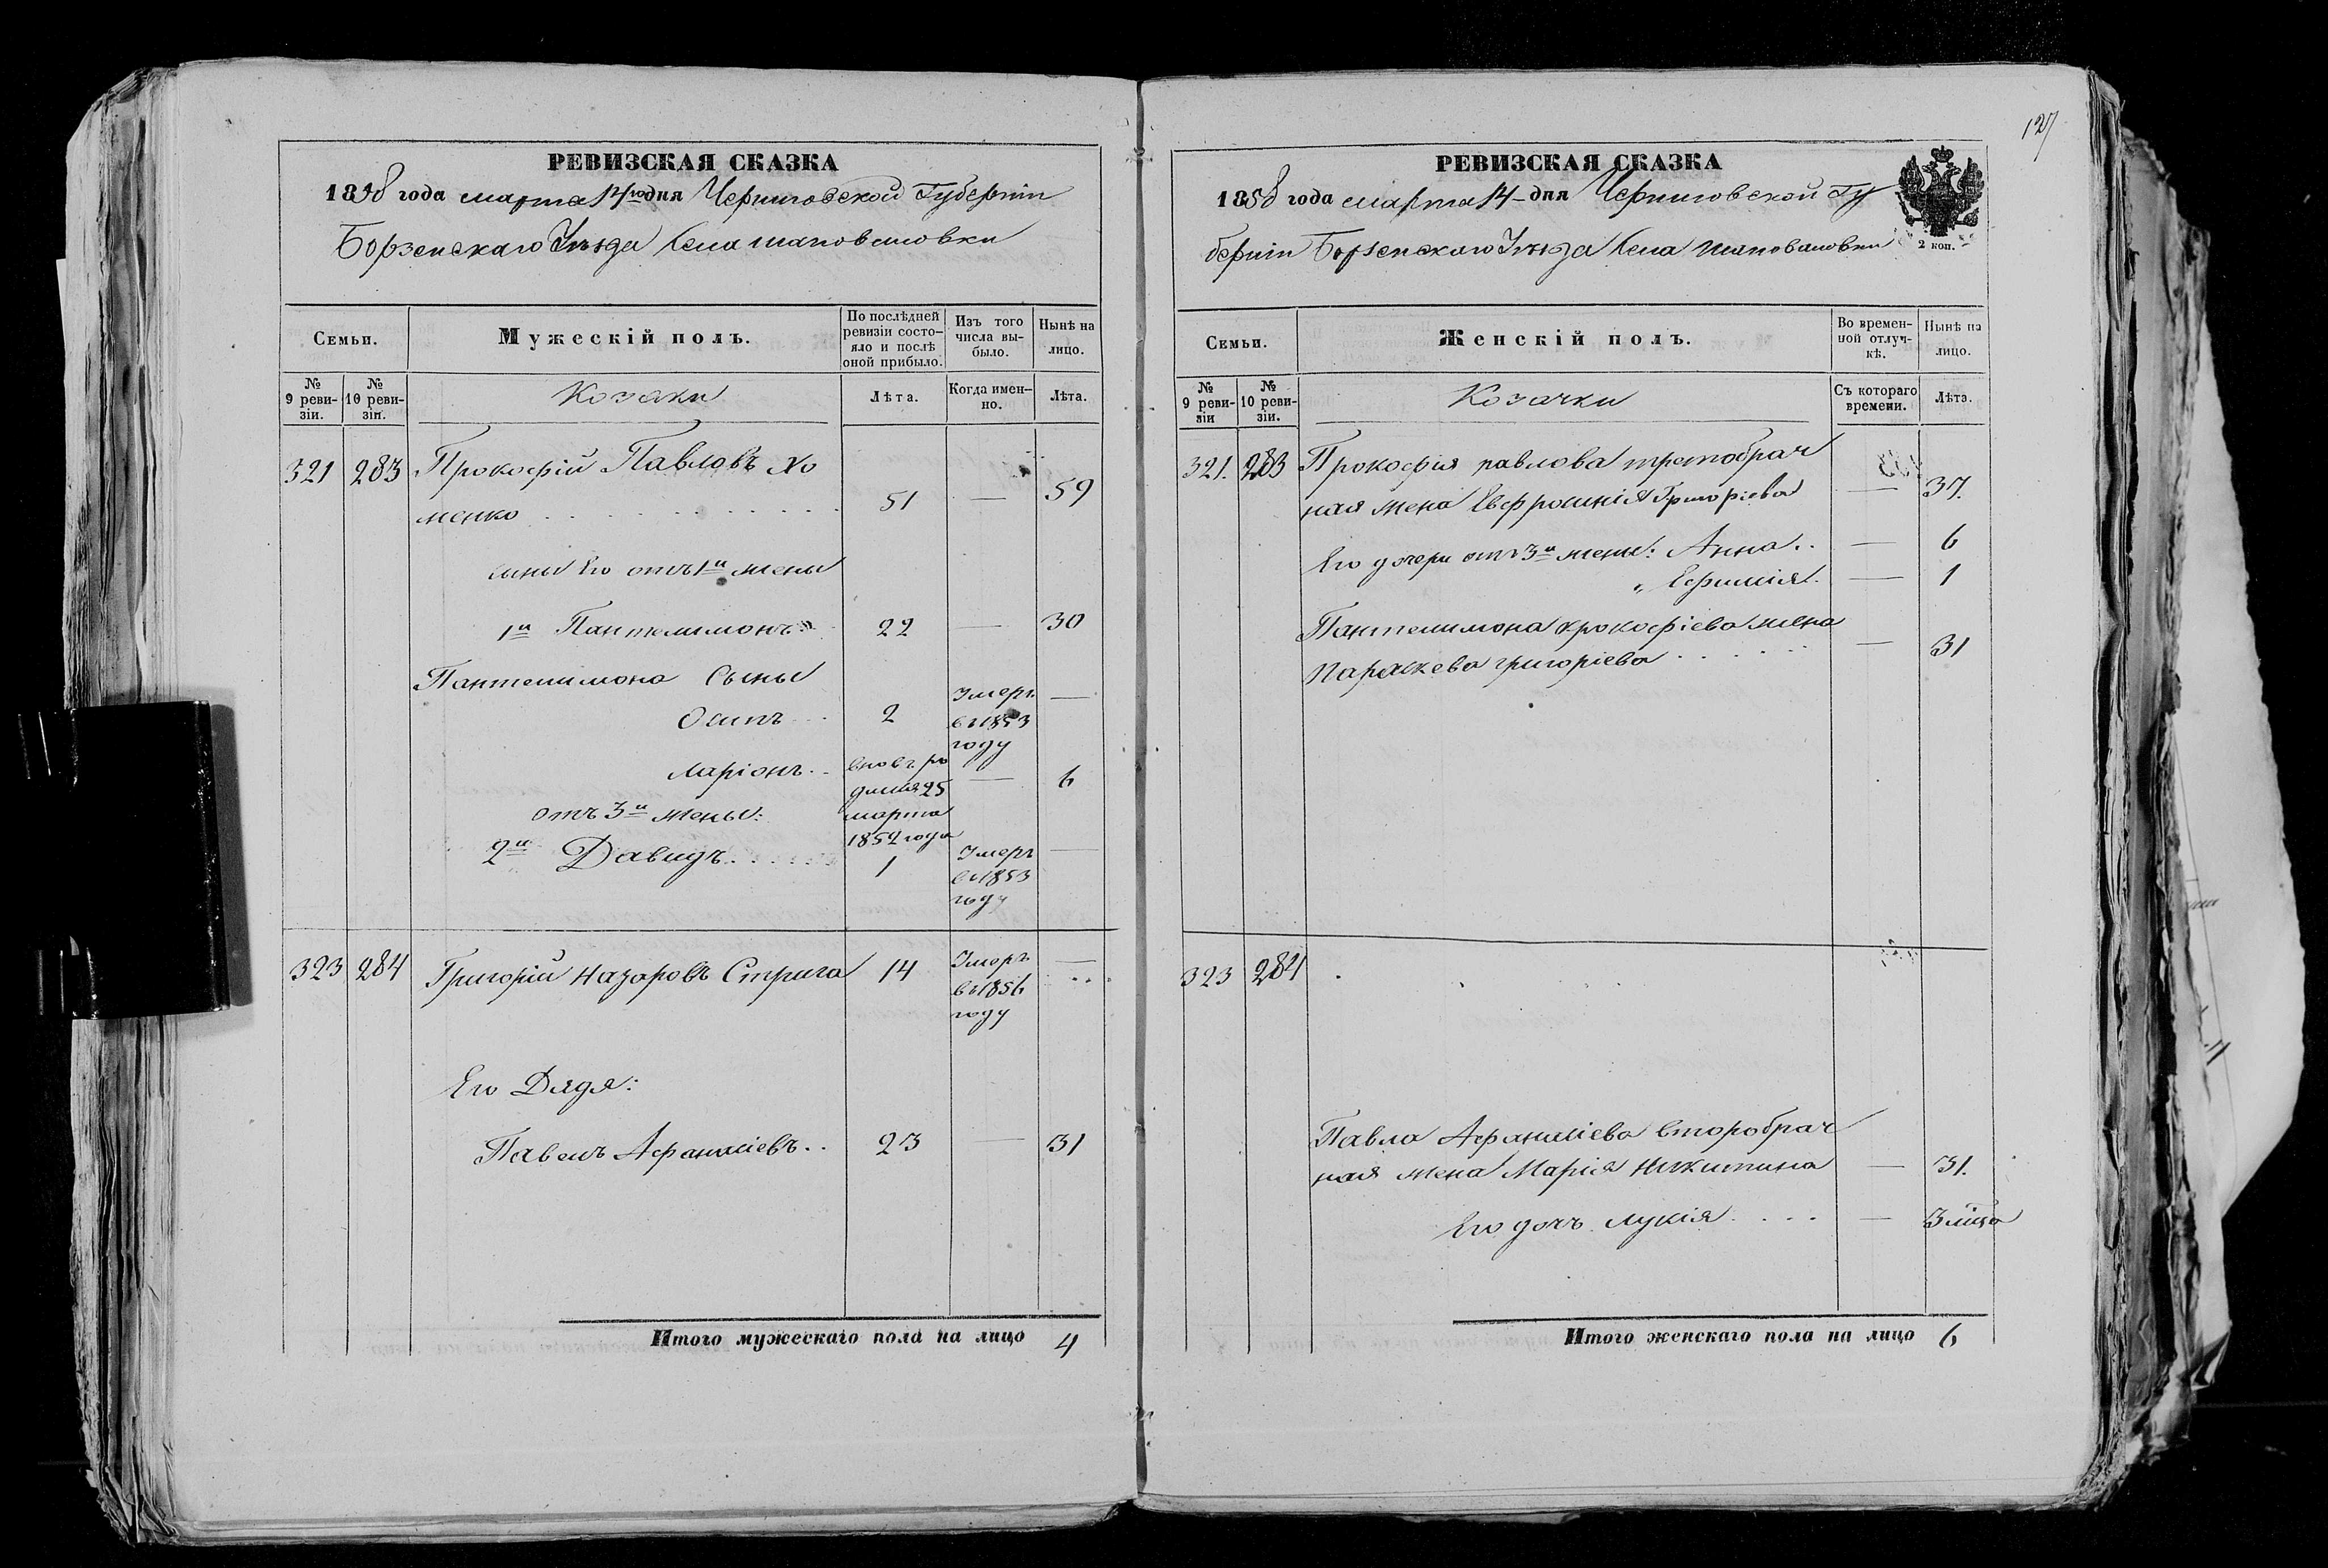 РЕВИЗСКАЯ СКАЗКА
1858 года марта 14го дня Черниговской Губерніи
Борзенскаго Уѣзда Села Шаповаловки
Семьи.
Мужескій полъ.
По послѣдней ревизіи состояло и послѣ оной прибыло.
Изъ того числа выбыло.
Нынѣ на лицо.
№ 9 ревизіи.
№ 10 ревизіи.
Козаки
Лѣта.
Когда именно.
Лѣта.
321 283 Прокофій Павловъ Хо
менко 51 — 59
сыны Его отъ 1й жены
1й Пантелимонъ 22 — 30
Пантелимона Сыны
Осипъ 2 Умеръ въ 1853 году —
Ларіонъ вновь родился 25 марта 1852 года — 6
отъ 3й жены:
2й Давидъ 1 Умеръ въ 1853 году —
323 284 Григорій Назаровъ Стрига 14 Умеръ въ 1856 году —
Его Дядя:
Павелъ Афанасіевъ 23 — 31
Итого мужескаго пола на лицо 4
127
РЕВИЗСКАЯ СКАЗКА
1858 года марта 14 дня Черниговской Гу
берніи Борзенскаго Уѣзда Села Шаповаловки
2 коп.
Семьи.
Женскій полъ.
Во временной отлучкѣ.
Нынѣ на лицо.
№ 9 ревизіи
№ 10 ревизіи.
Козачки
Съ котораго времени.
Лѣта.
321. 283 Прокофія павлова третобрач
ная жена Евфросинія Григоріева — 37.
Его дочери отъ 3й жены: Анна — 6
„ Ефимія — 1
Пантелимона прокофіева жена
Параскева григоріева — 31
323 284
Павла Афанасіева второбрач
ная жена Марія Никитина — 31.
Его дочь Лукія — 3 мѣсяца
Итого женскаго пола на лицо 6